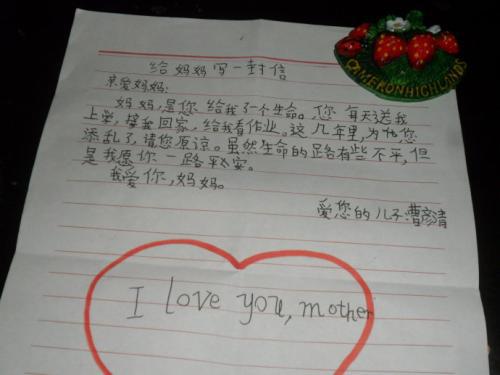 给妈妈写一封信
亲爱妈妈:
妈妈,是您给我了一个生命。您每天送我
上学,接我回家,给我看作业。这几年里,为你您
添乱了,请您原谅。虽然生命的路有些不平,但
是我愿你一路平安。
我爱你,妈妈。
爱您的儿子:曹彦清
I love you, mother
CAMERONHIGHLANDS